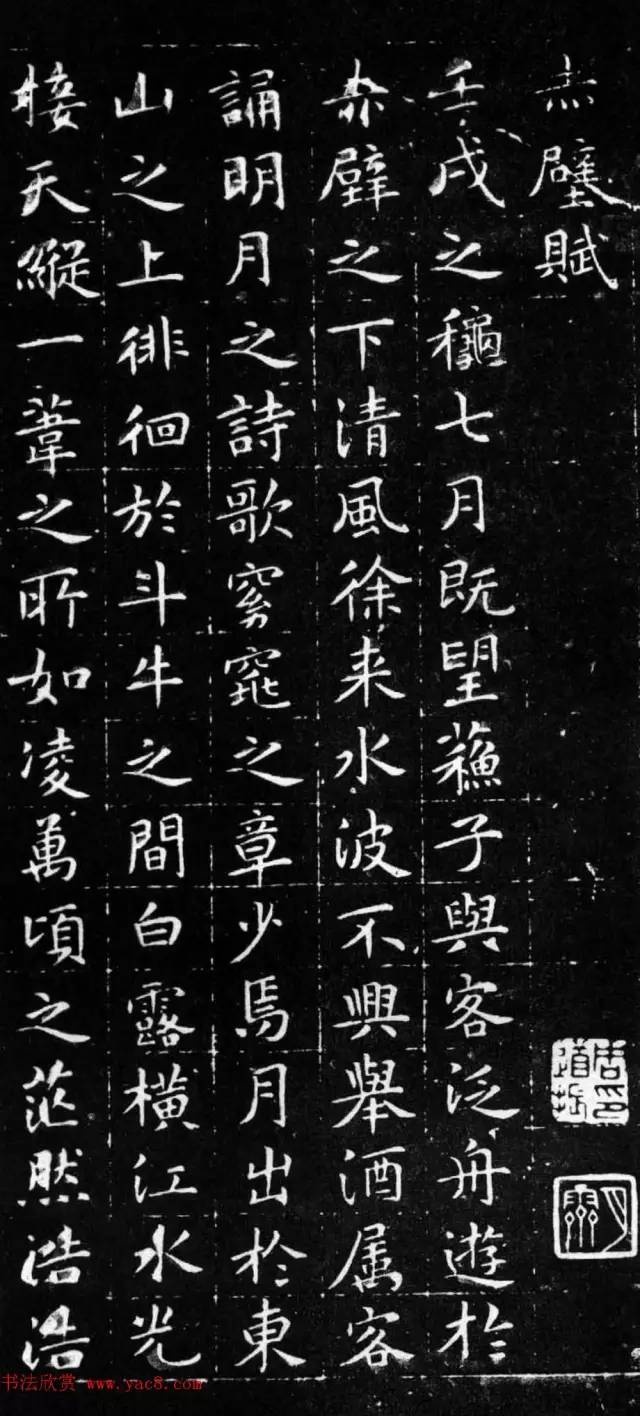 赤壁賦
壬戌之龝七月既望蘓子與客泛舟遊於
赤壁之下清風徐来水波不興舉酒属客
誦明月之詩歌窈窕之章少焉月出於東
山之上徘徊於斗牛之間白露橫江水光
接天縱一葦之所如凌萬頃之茫然浩浩
周印道振
书法欣赏 www.yac8.com